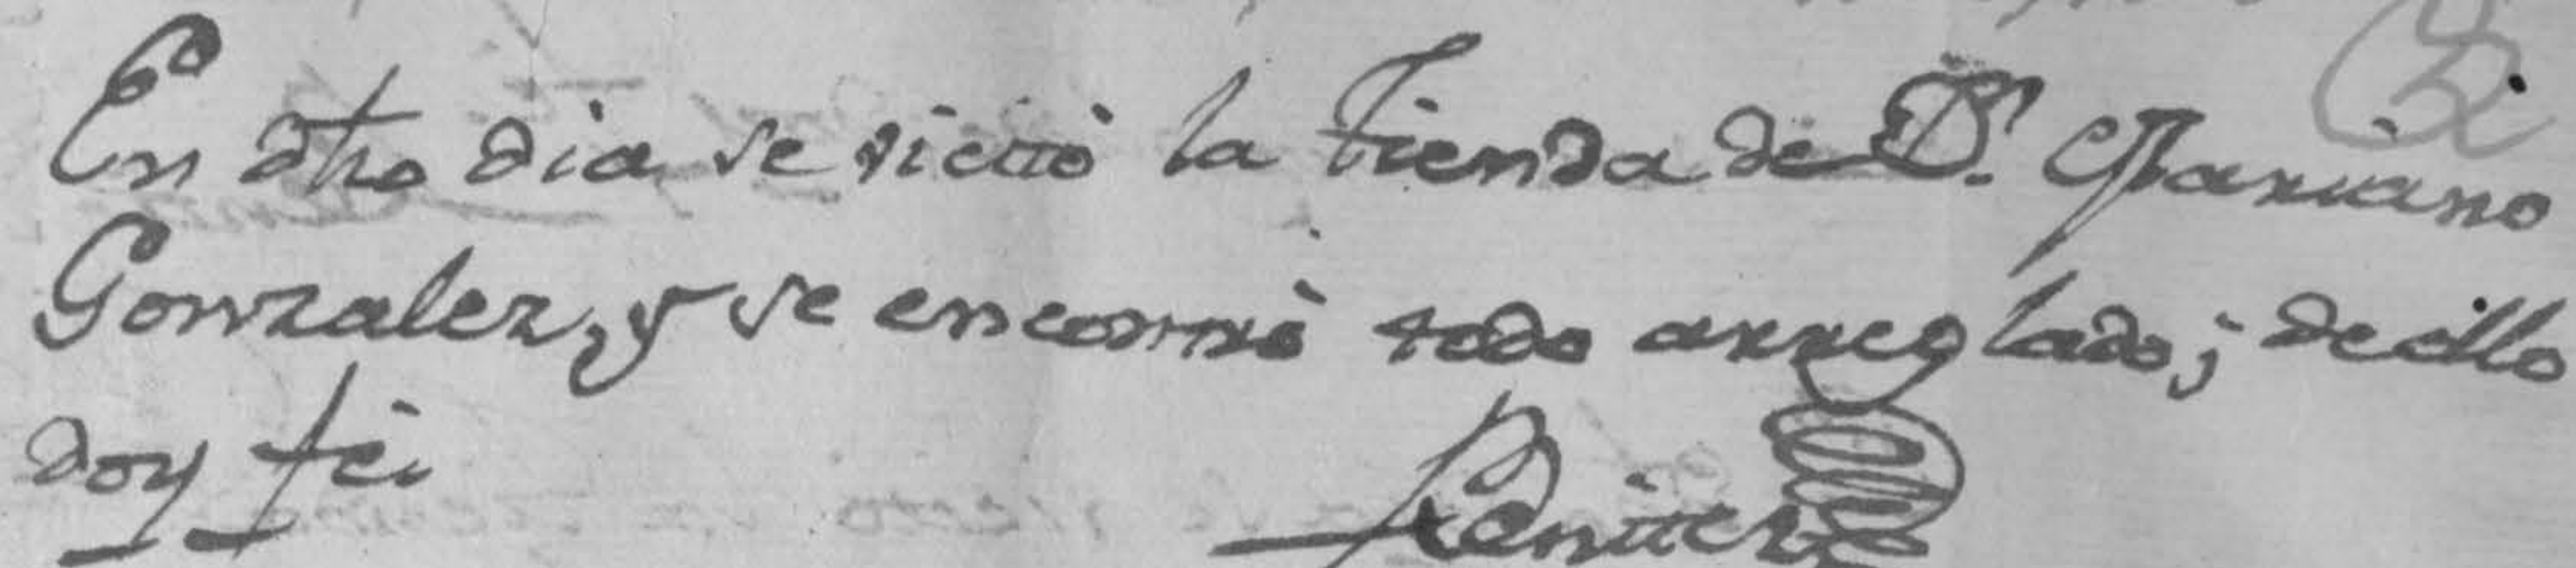 En dho dia se vicitó la Tienda de Dn. Mariano
Gonzalez, y se encontró todo arreglado; de ello
doy fé.
Benitez